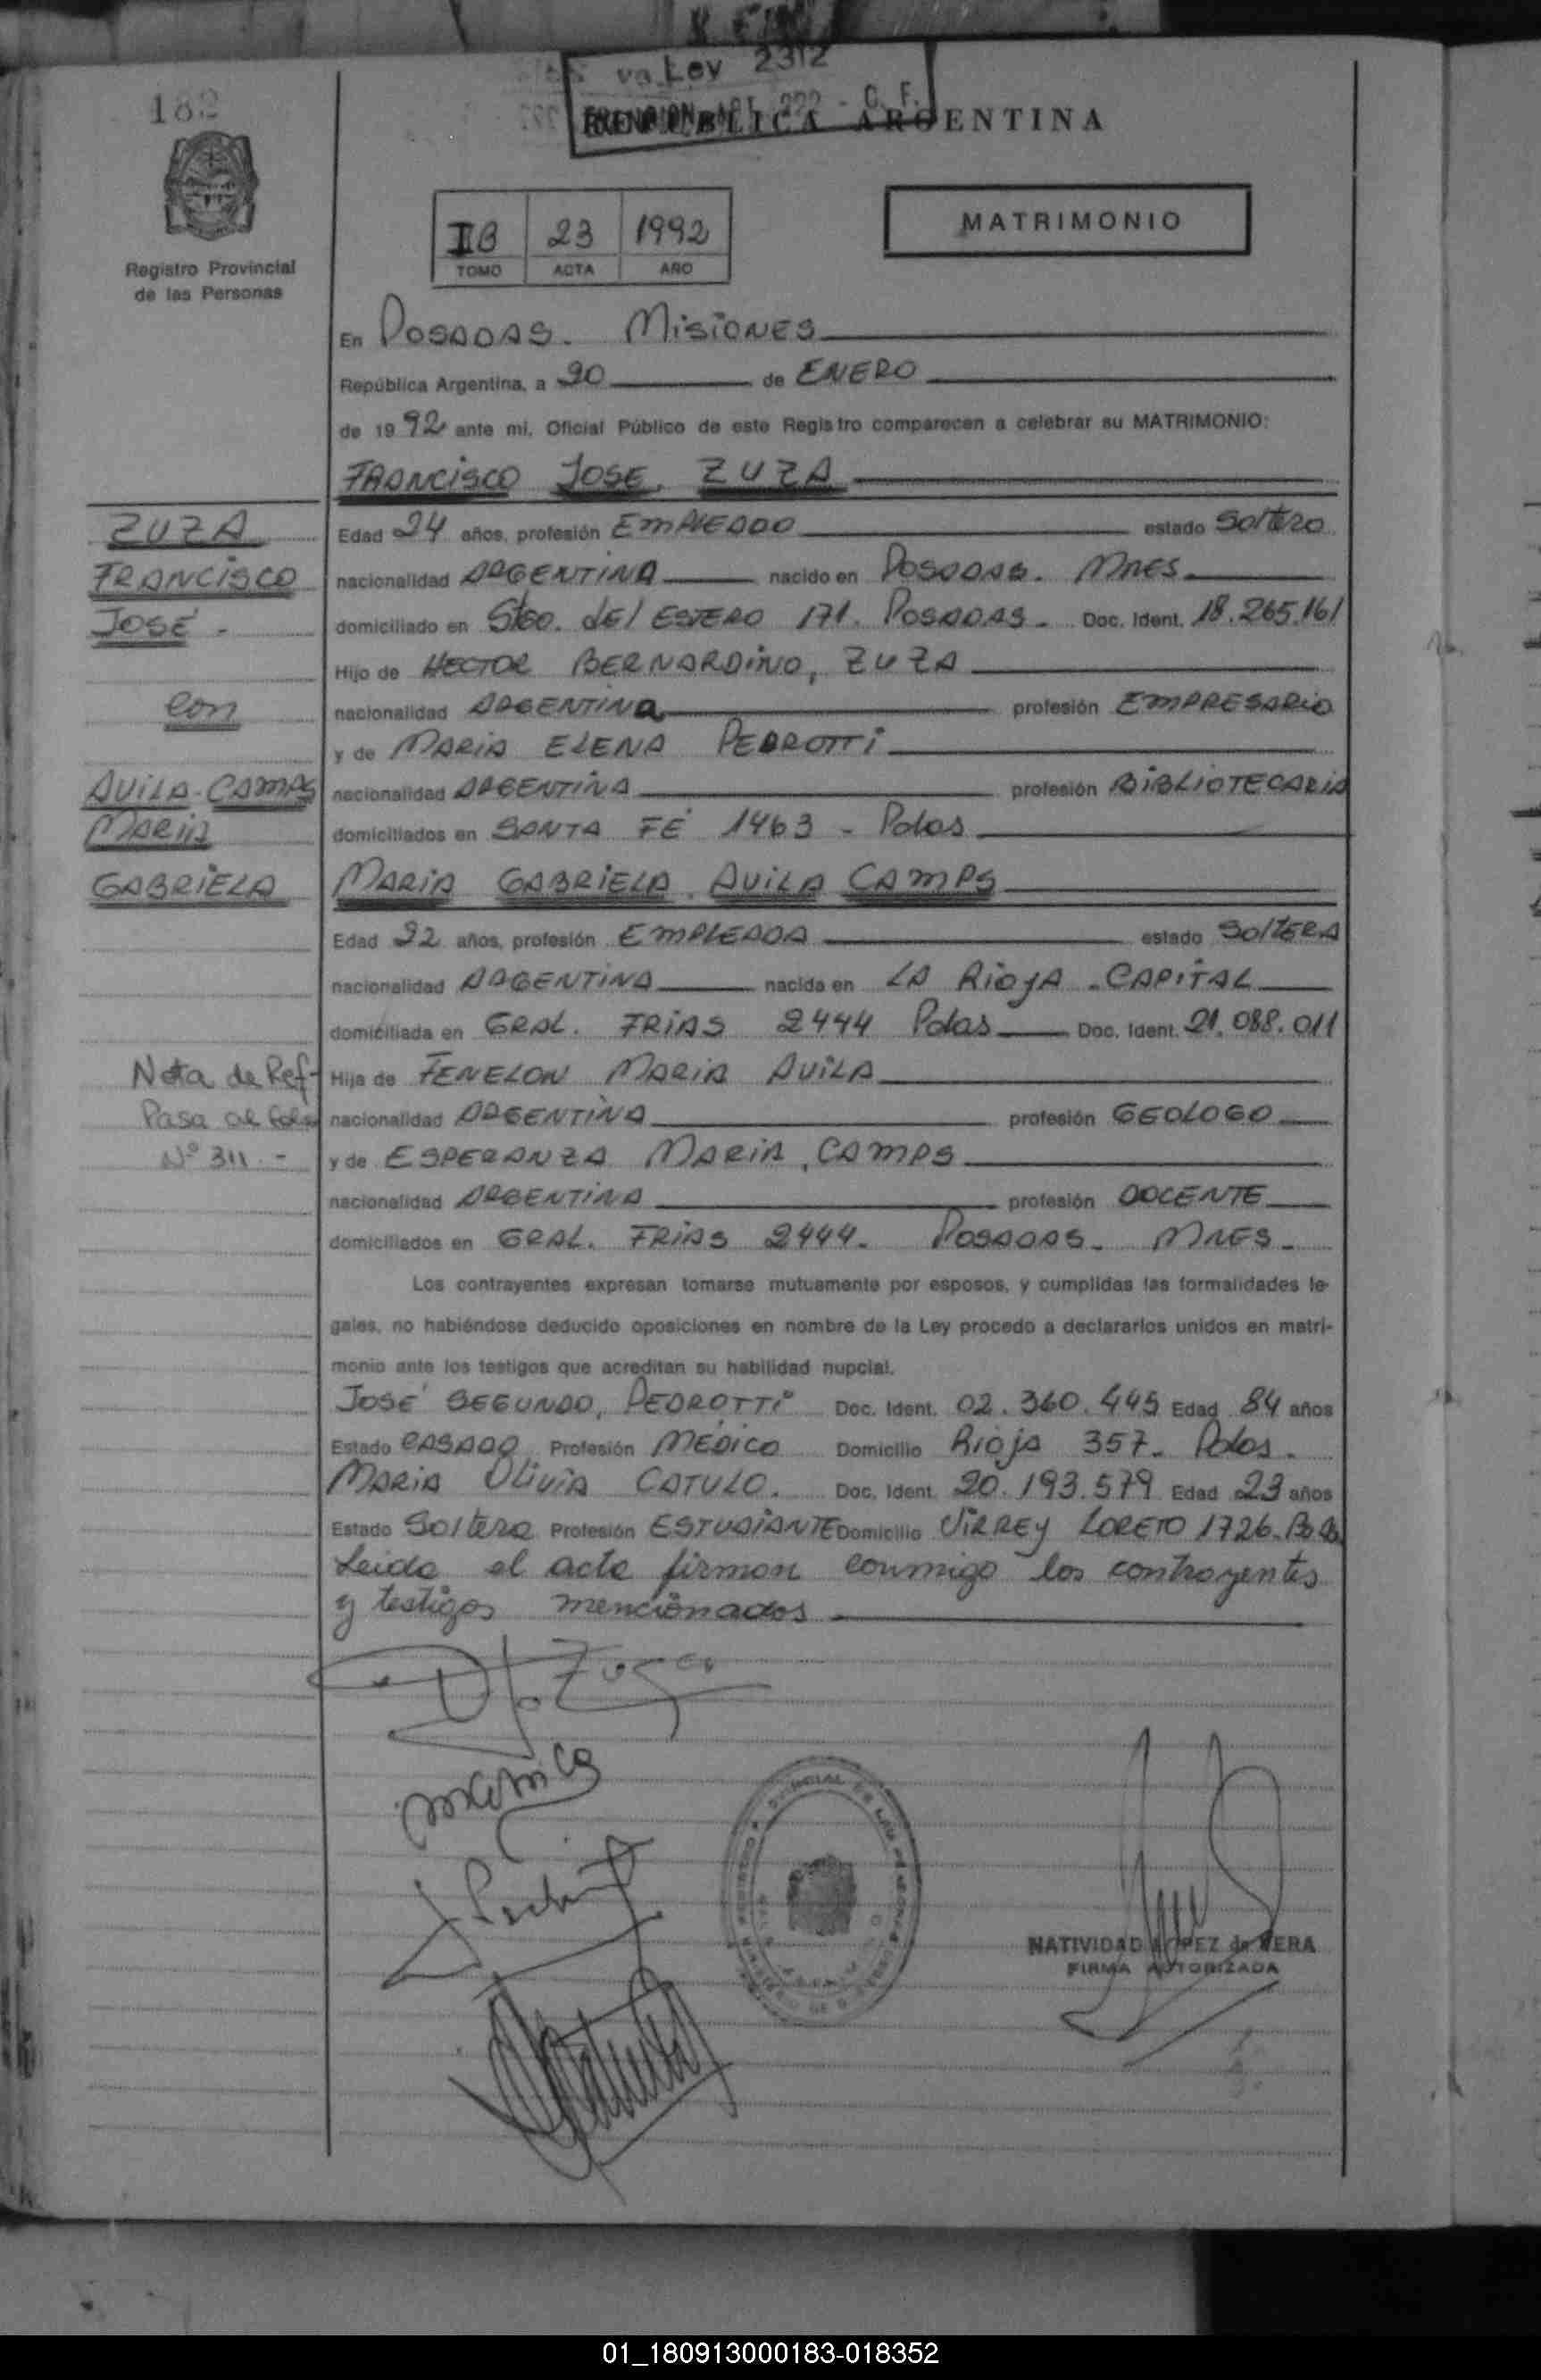 va Ley 2312
182
REPUBLICA ARGENTINA
MATRIMONIO
IIB 23 1992
TOMO ACTA AÑO
Registro Provincial
de las Personas
En POSADAS. MISIONES
República Argentina, a 20 de ENERO
de 1992 ante mi, Oficial Público de este Registro comparecen a celebrar su MATRIMONIO:
FRANCISCO JOSE, ZUZA
ZUZA
FRANCISCO
JOSÉ -
con
AVILA-CAMPS
MARIA
GABRIELA
Edad 24 años, profesión EMPLEADO estado SolteRO
nacionalidad ARGENTINA nacido en POSADAS. MNES.
domiciliado en Stgo. del ESTERO 171. POSADAS - Doc. Ident. 18.265.161
Hijo de HECTOR BERNARDINO, ZUZA
nacionalidad ARGENTINA profesión EMPRESARIO
y de MARIA ELENA PEDROTTI
nacionalidad ARGENTINA profesión BIBLIOTECARIA
domiciliados en SANTA FÉ 1463 - Pdas
MARIA GABRIELA, AVILA CAMPS
Edad 22 años, profesión EMPLEADA estado SolTERA
nacionalidad ARGENTINA nacida en LA RIOJA - CAPITAL
domiciliada en GRAL. FRIAS 2444 Pdas Doc. Ident. 21.088.011
Nota de Ref-
Pasa al folio
Nº 311. -
Hija de FENELON MARIA AVILA
nacionalidad ARGENTINA profesión GEOLOGO
y de ESPERANZA MARIA, CAMPS
nacionalidad ARGENTINA profesión DOCENTE
domiciliados en GRAL. FRIAS 2444. POSADAS - MNES -
Los contrayentes expresan tomarse mutuamente por esposos, y cumplidas las formalidades le-
gales, no habiéndose deducido oposiciones en nombre de la Ley procedo a declararlos unidos en matri-
monio ante los testigos que acreditan su habilidad nupcial.
JOSÉ SEGUNDO, PEDROTTI Doc. Ident. 02.360.445 Edad 84 años
Estado CASADO Profesión MÉDICO Domicilio Rioja 357. Pdas.
MARIA OLIVIA CATULO. Doc. Ident. 20.193.579 Edad 23 años
Estado Soltera Profesión ESTUDIANTE Domicilio VIRREY LORETO 1726.
Leida el acta firman conmigo los contrayentes
y testigos mencionados
Zuza
NATIVIDAD LOPEZ de VERA
FIRMA AUTORIZADA
01_180913000183-018352